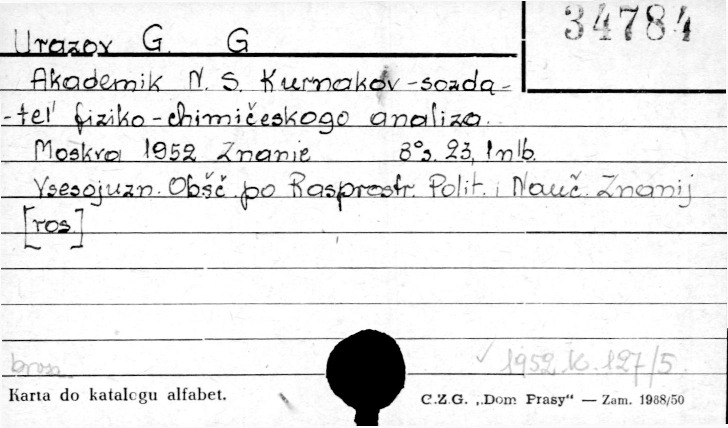 34784
Urazov G. G
Akademik N. S. Kurnakov - sozda-
-tel' fiziko-chimičeskogo analiza.
Moskva 1952 Znanie 8° s. 23, 1 nlb.
Vsesojuzn. Obšč. po Rasprostr. Polit. i Nauč. Znanij
[ros.]
brosz.
1952 K. 127/5.
Karta do katalogu alfabet.
C.Z.G. „Dom Prasy“ — Zam. 1988/50